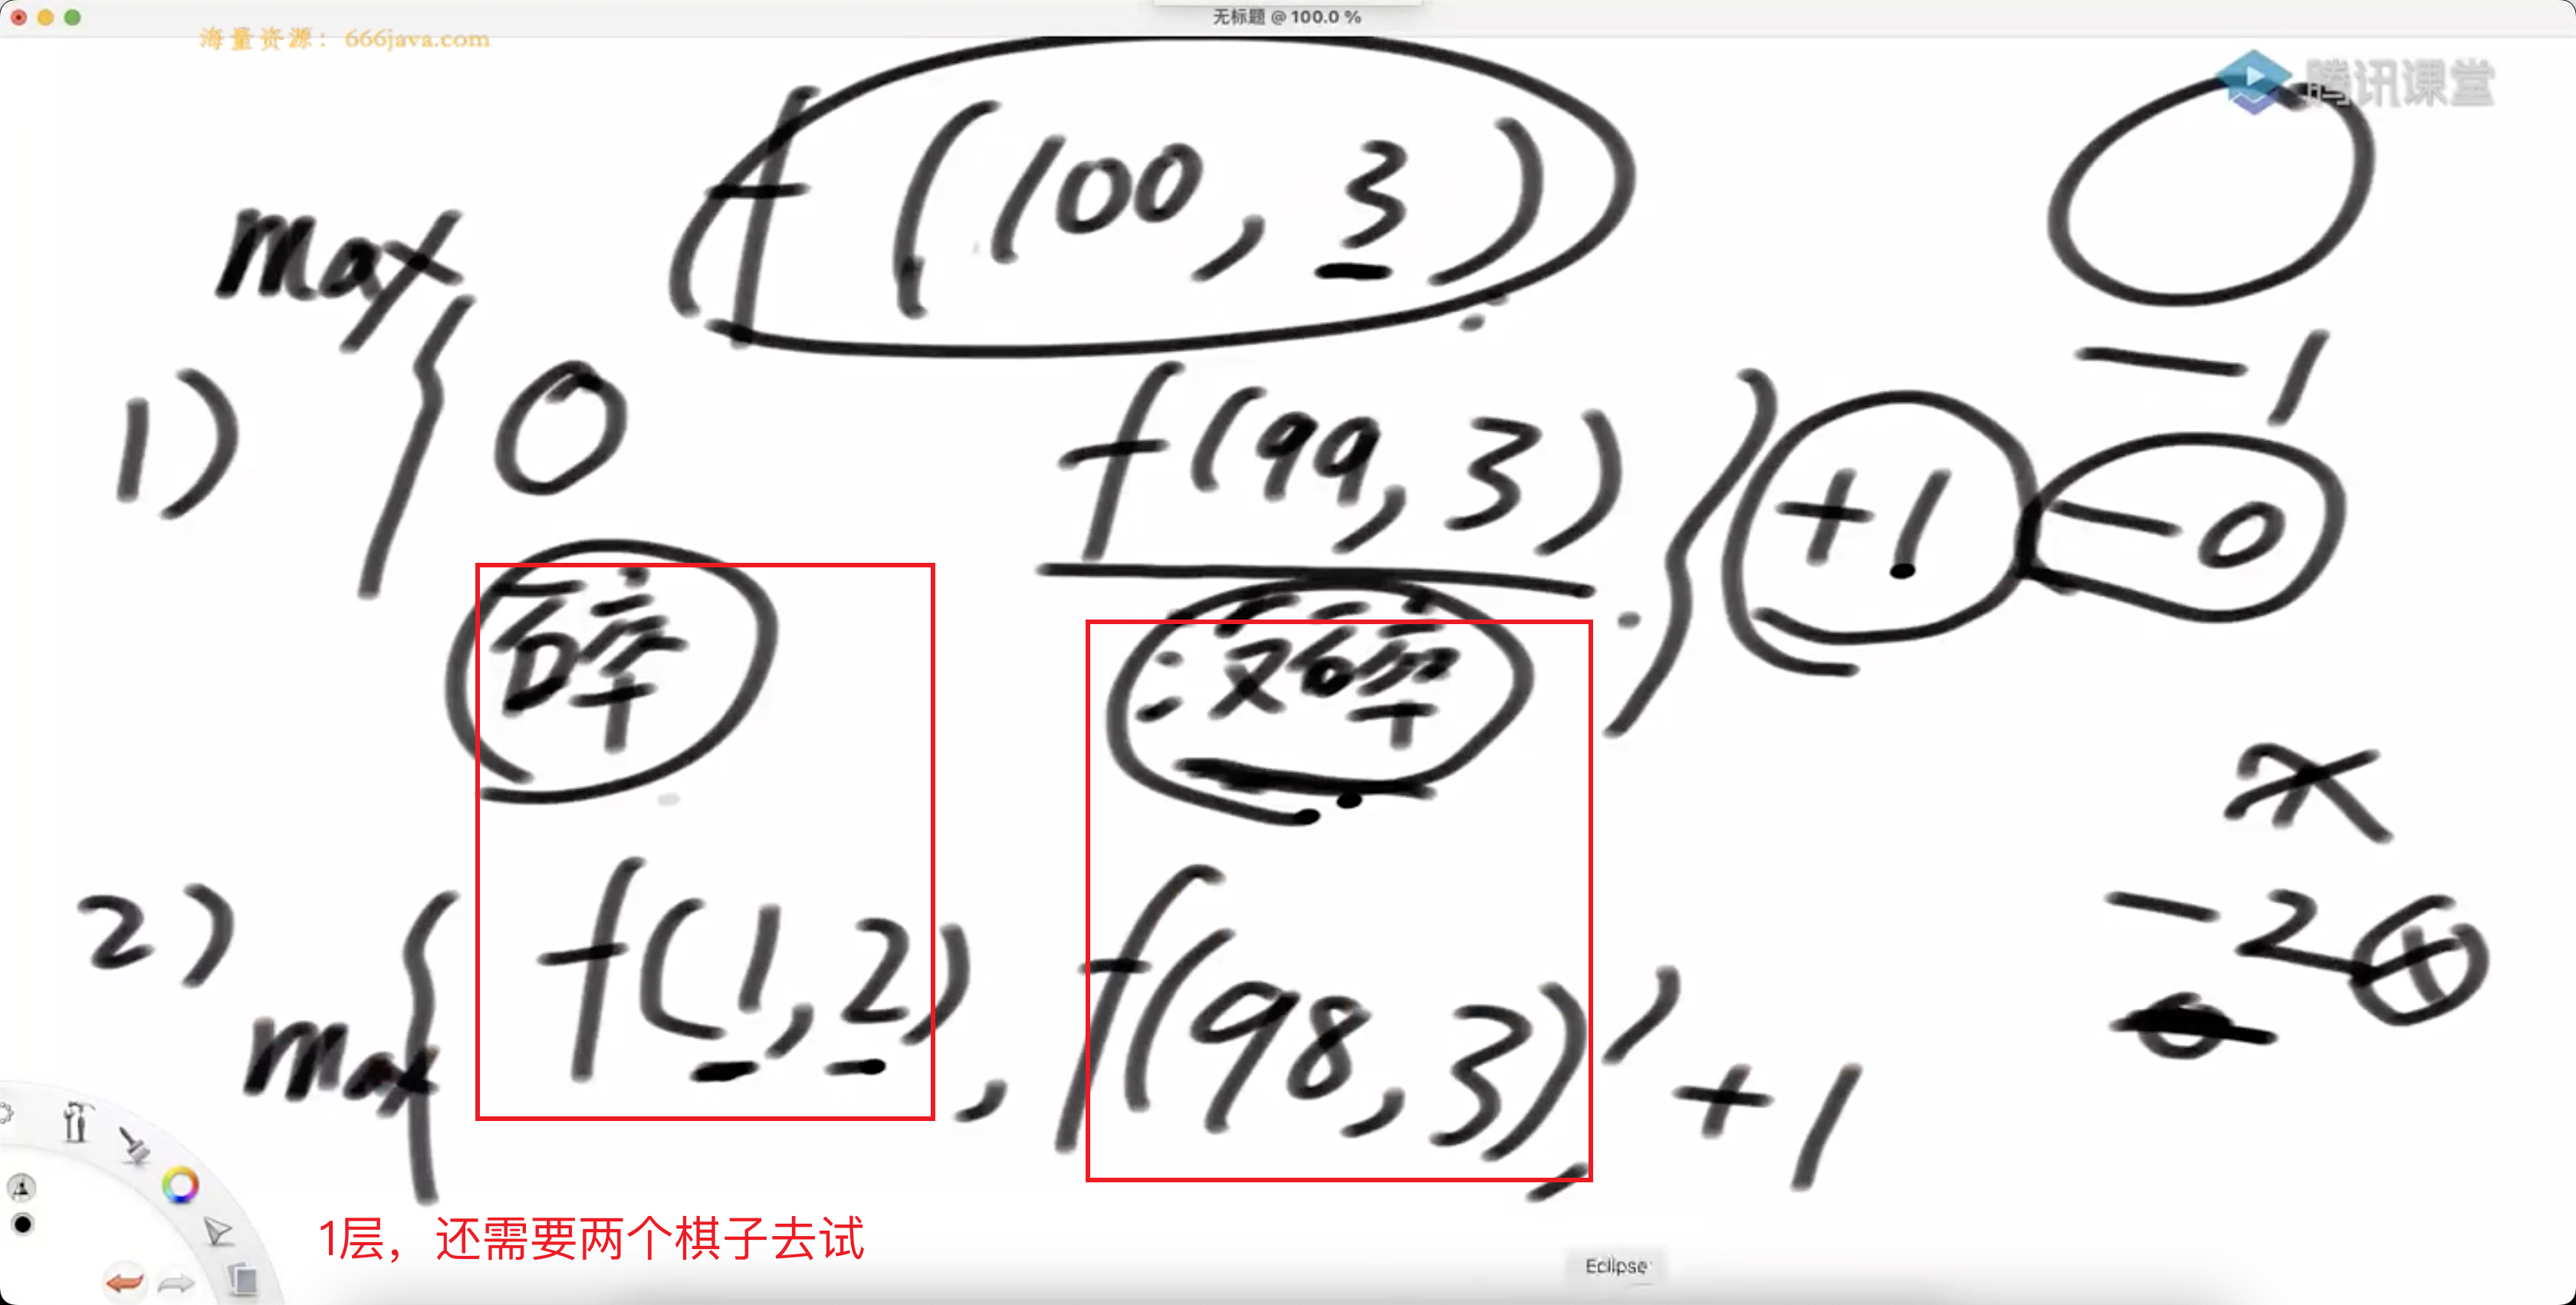 无标题 @ 100.0 %
海量资源：666java.com
腾讯课堂
f(100, 3)
max
1) { 0 f(99, 3) } +1 -0
-1
碎 没碎
2) max { f(1, 2), f(98, 3), +1
-2
1层，还需要两个棋子去试
Eclipse